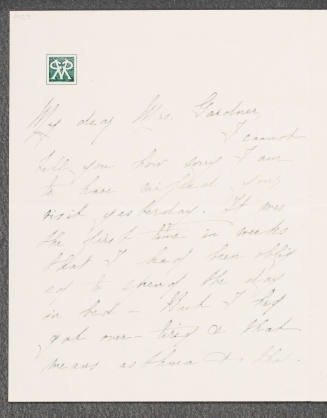 My dear Mrs. Gardner,
I cannot
tell you how sorry I am
to have missed your
visit yesterday. It was
the first time in weeks
that I had been oblig
ed to spend the day
in bed – But I had
got over-tired & that
means asthma & the